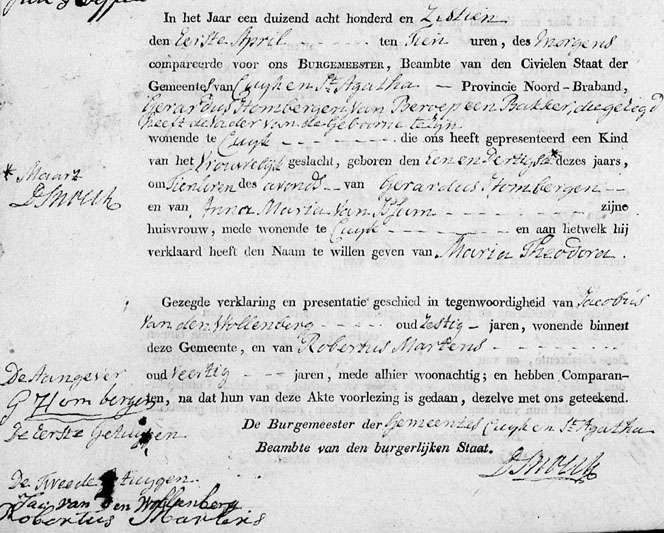 In het Jaar een duizend acht honderd en Zestien
den Eerste April - - - - - ten Tien uren, des Morgens
compareerde voor ons BURGEMEESTER, Beambte van den Civielen Staat der
Gemeentes van Cuyk en St. Agatha - Provincie Noord-Braband,
Gerardus Hombergen, van Beroep een Bakker, die gezegd
heeft de vader van de Geborne te zyn
wonende te Cuyk - - - - - die ons heeft gepresenteerd een Kind
van het Vrouwelyk geslacht, geboren den eenen Dertigste* dezes jaars,
* Maart
DSnouck
om Tien uren des avonds - van Gerardus Hombergen
en van Anna Maria Van - - - - - zijne
huisvrouw, mede wonende te Cuyk - - - - en aan hetwelk hij
verklaard heeft den Naam te willen geven van Maria Theodora.
Gezegde verklaring en presentatie geschied in tegenwoordigheid van Jacobus
Van den Wollenberg - - - - - oud Zestig - jaren, wonende binnen
deze Gemeente, en van Robertus Martens - - - - -
oud Veertig - - - jaren, mede alhier woonachtig; en hebben Comparan-
ten, na dat hun van deze Akte voorlezing is gedaan, dezelve met ons geteekend.
De Aangever
G Hombergen
De Eerste Getuigen
De Burgemeester der Gemeentes Cuyk en St. Agatha
Beambte van den burgerlijken Staat.
DSnouck
De Tweede Getuygen
Jac van den Wollenberg
Robertus Martens